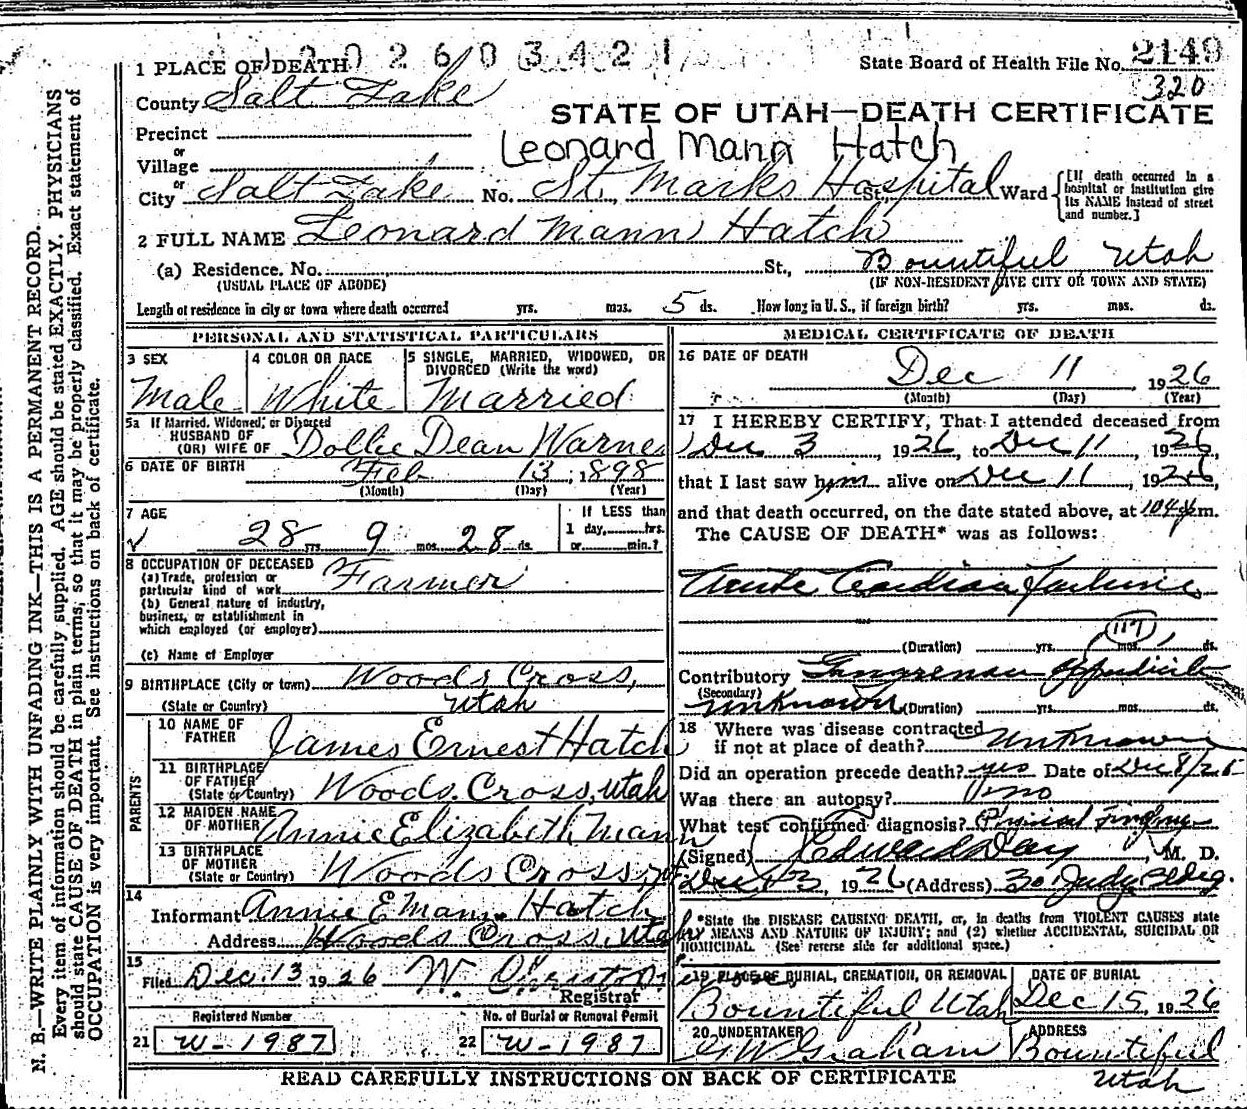 202603421
State Board of Health File No. 2149
320
1 PLACE OF DEATH
County Salt Lake
STATE OF UTAH—DEATH CERTIFICATE
Precinct
or
Village
Leonard Mann Hatch
or
City Salt Lake No. St. Marks Hospital St., Ward
[If death occurred in a hospital or institution give its NAME instead of street and number.]
2 FULL NAME Leonard Mann Hatch
(a) Residence. No. St., Bountiful Utah
(USUAL PLACE OF ABODE) (IF NON-RESIDENT GIVE CITY OR TOWN AND STATE)
Length of residence in city or town where death occurred yrs. mos. 5 ds. How long in U. S., if foreign birth? yrs. mos. ds.
PERSONAL AND STATISTICAL PARTICULARS
3 SEX Male
4 COLOR OR RACE White
5 SINGLE, MARRIED, WIDOWED, OR DIVORCED (Write the word) Married
5a If Married, Widowed, or Divorced
HUSBAND OF
(OR) WIFE OF Dollie Dean Warne
6 DATE OF BIRTH Feb 13, 1898
(Month) (Day) (Year)
7 AGE 28 yrs. 9 mos. 28 ds.
If LESS than
1 day, hrs.
or min.?
8 OCCUPATION OF DECEASED
(a) Trade, profession or
particular kind of work Farmer
(b) General nature of industry,
business, or establishment in
which employed (or employer)
(c) Name of Employer
9 BIRTHPLACE (City or town) Woods Cross,
(State or Country) Utah
PARENTS
10 NAME OF
FATHER James Ernest Hatch
11 BIRTHPLACE
OF FATHER
(State or Country) Woods Cross, Utah
12 MAIDEN NAME
OF MOTHER Annie Elizabeth Mann
13 BIRTHPLACE
OF MOTHER
(State or Country) Woods Cross
14
Informant Annie E Mann Hatch
Address Woods Cross, Utah
15
Filed Dec. 13 1926
Registrar
Registered Number
21 W-1987
No. of Burial or Removal Permit
22 W-1987
MEDICAL CERTIFICATE OF DEATH
16 DATE OF DEATH
Dec 11, 1926
(Month) (Day) (Year)
17 I HEREBY CERTIFY, That I attended deceased from
Dec 3, 1926, to Dec 11, 1926,
that I last saw him alive on Dec 11, 1926,
and that death occurred, on the date stated above, at m.
The CAUSE OF DEATH* was as follows:
Acute Cardiac Failure
117
(Duration) yrs. mos. ds.
Contributory Gangrenous Appendicitis
(Secondary)
unknown (Duration) yrs. mos. ds.
18 Where was disease contracted
if not at place of death? Unknown
Did an operation precede death? yes Date of Dec 8/26
Was there an autopsy? no
What test confirmed diagnosis? Physical Findings
(Signed) Edward Day, M. D.
1926 (Address) 30 Judge Bldg.
*State the DISEASE CAUSING DEATH, or, in deaths from VIOLENT CAUSES state
MEANS AND NATURE OF INJURY; and (2) whether ACCIDENTAL, SUICIDAL OR
HOMICIDAL. (See reverse side for additional space.)
19 PLACE OF BURIAL, CREMATION, OR REMOVAL
Bountiful Utah
DATE OF BURIAL
Dec 15, 1926
20 UNDERTAKER
G W Graham
ADDRESS
Bountiful
Utah
READ CAREFULLY INSTRUCTIONS ON BACK OF CERTIFICATE
N. B.—WRITE PLAINLY WITH UNFADING INK—THIS IS A PERMANENT RECORD.
Every item of information should be carefully supplied. AGE should be stated EXACTLY. PHYSICIANS
should state CAUSE OF DEATH in plain terms, so that it may be properly classified. Exact statement of
OCCUPATION is very important. See instructions on back of certificate.